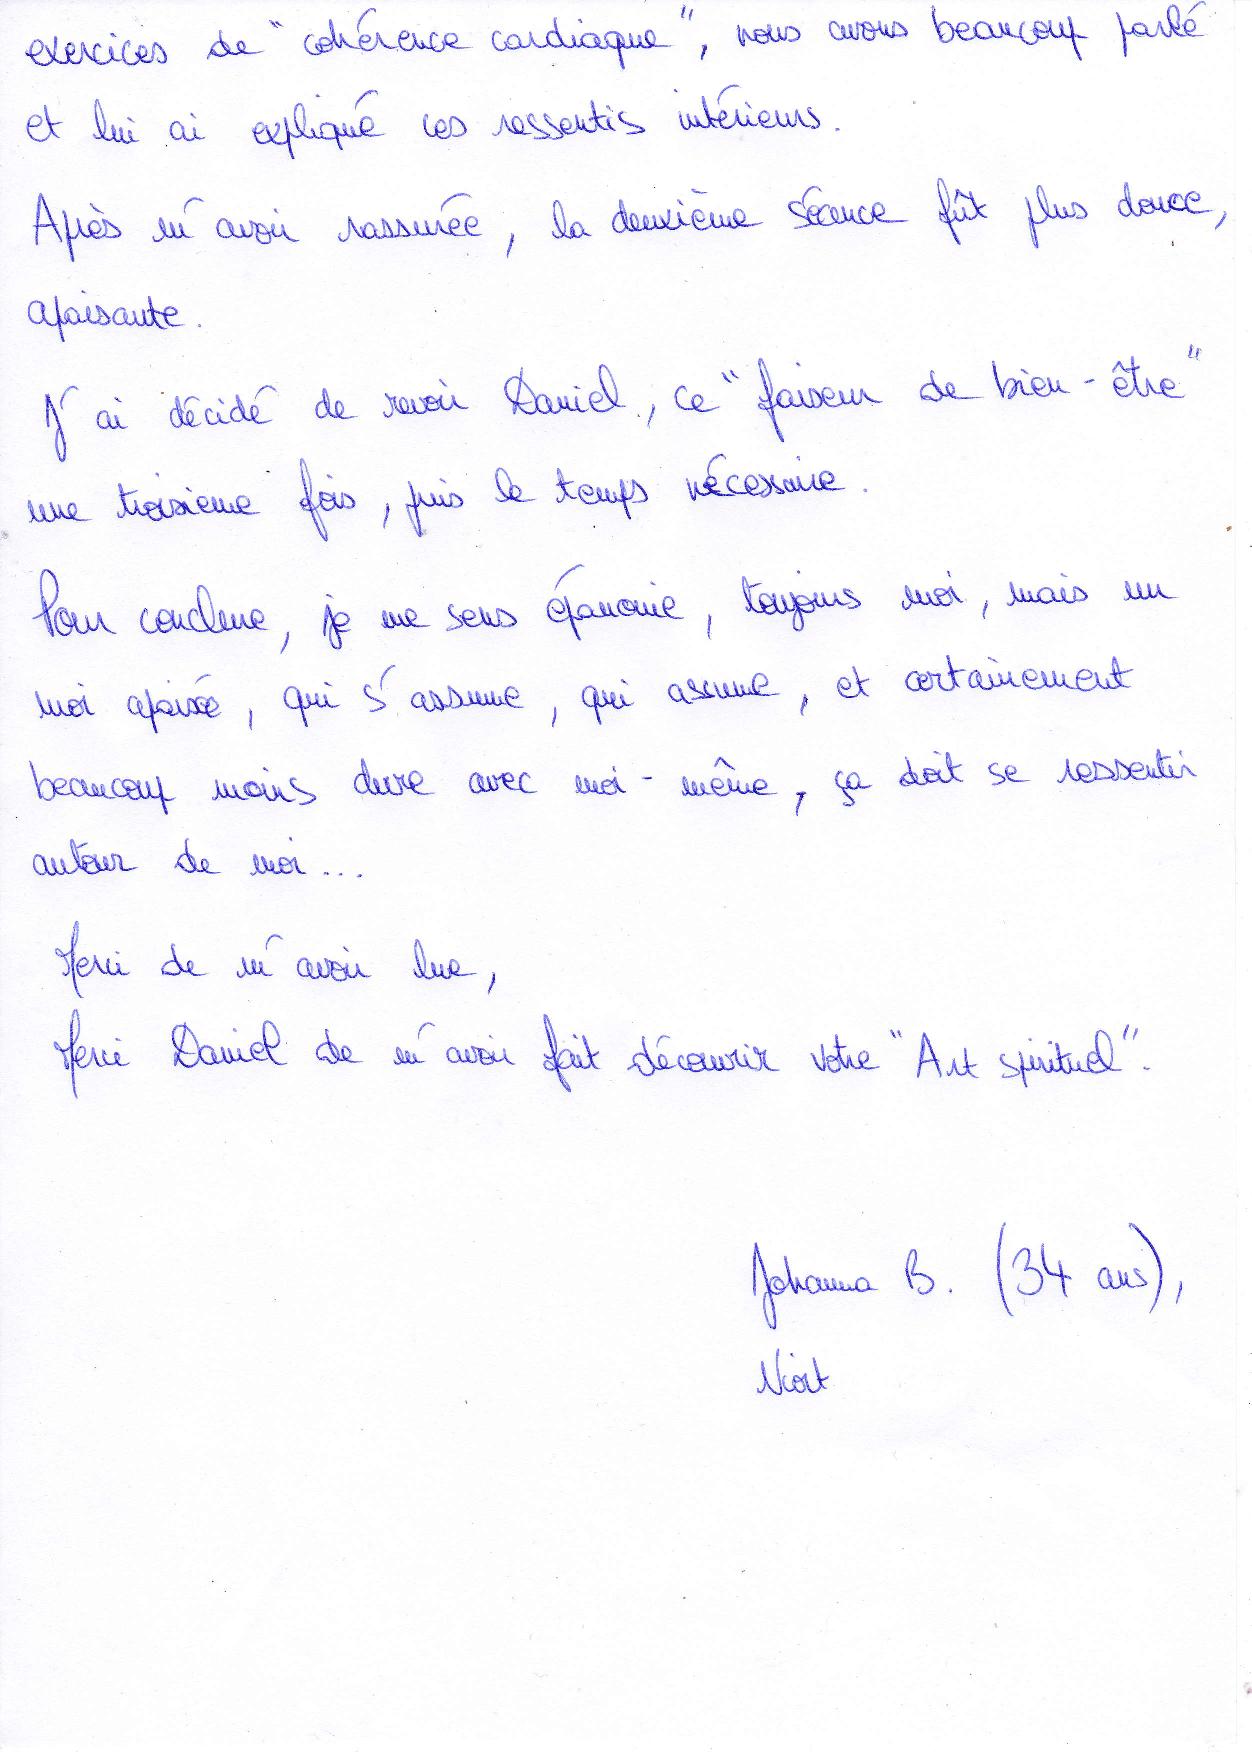 exercices de "cohérence cardiaque", nous avons beaucoup parlé
et lui ai expliqué ces ressentis intérieurs.
Après m'avoir rassurée, la deuxième séance fût plus douce,
apaisante.
J'ai décidé de revoir Daniel, ce "faiseur de bien-être"
une troisième fois, puis le temps nécessaire.
Pour conclure, je me sens épanouie, toujours moi, mais un
moi apaisé, qui s'assume, qui assume, et certainement
beaucoup moins dure avec moi-même, ça doit se ressentir
autour de moi...
Merci de m'avoir lue,
Merci Daniel de m'avoir fait découvrir votre "Art spirituel".
Johanna B. (34 ans),
Niort